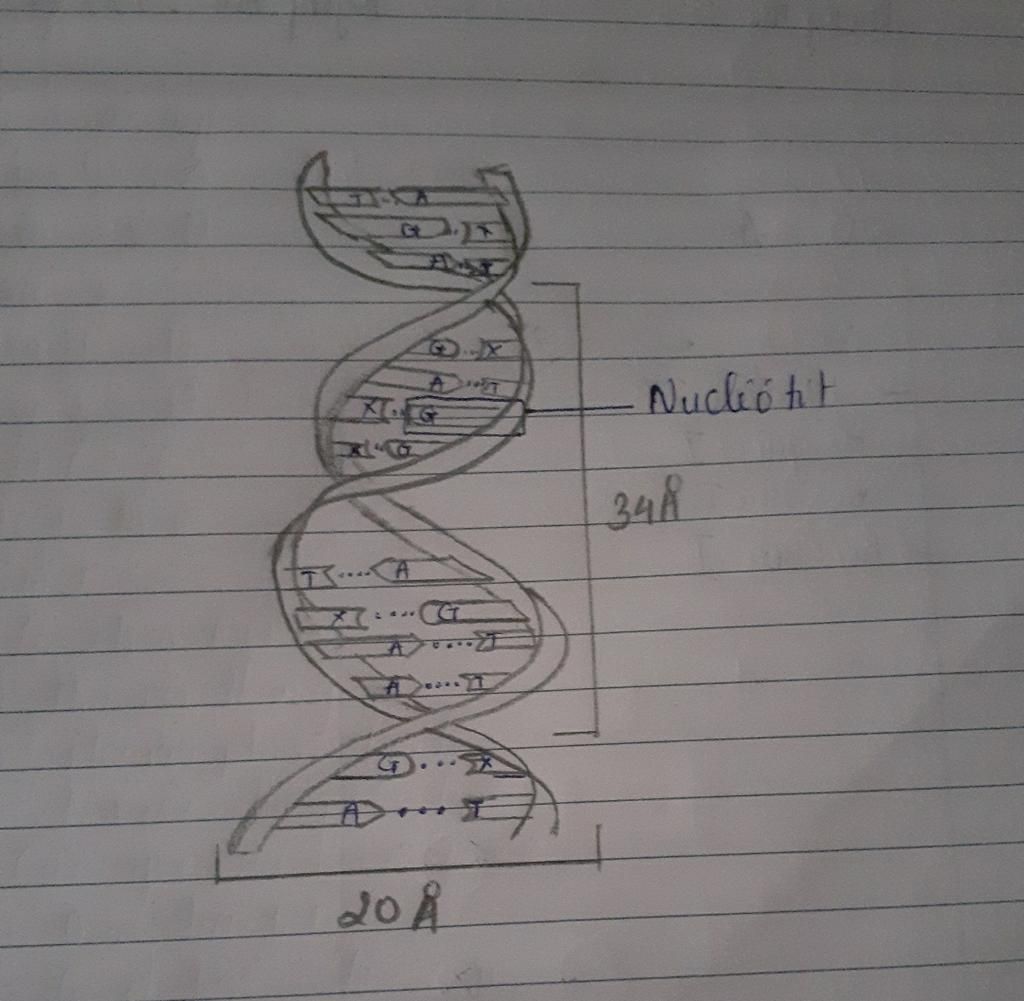 T A
G X
A T
G X
A T
X G
Nuclêôtit
X G
34Å
T A
X G
A T
A T
G X
A T
20Å